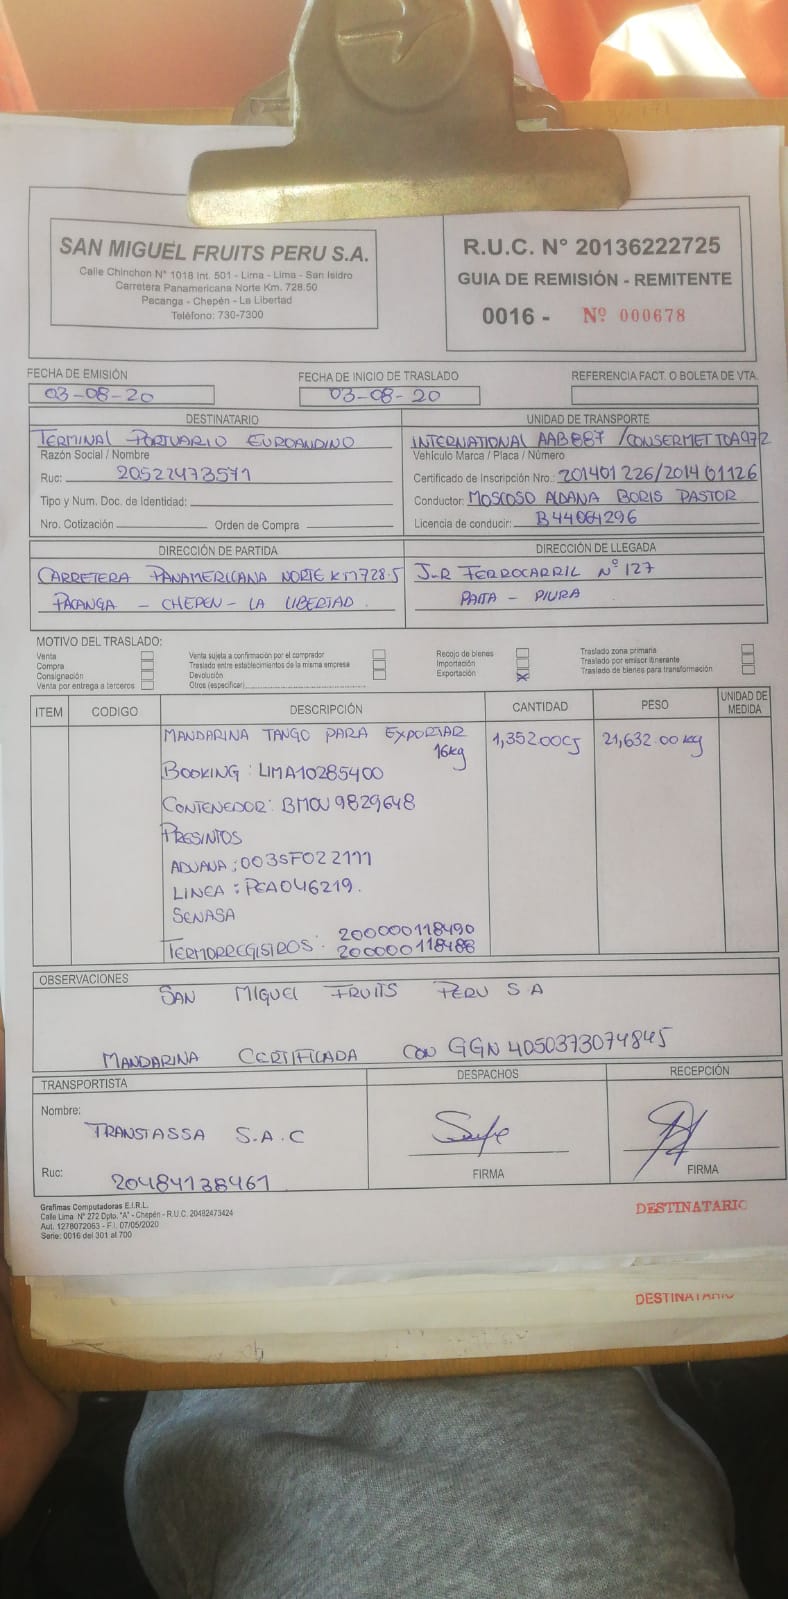 SAN MIGUEL FRUITS PERU S.A.
Calle Chinchon N° 1018 Int. 501 - Lima - Lima - San Isidro
Carretera Panamericana Norte Km. 728.50
Pacanga - Chepén - La Libertad
Teléfono: 730-7300
R.U.C. N° 20136222725
GUIA DE REMISIÓN - REMITENTE
0016 - Nº 000678
FECHA DE EMISIÓN
03-08-20
FECHA DE INICIO DE TRASLADO
03-08-20
REFERENCIA FACT. O BOLETA DE VTA.
DESTINATARIO
TERMINAL PORTUARIO EUROANDINO
Razón Social / Nombre
Ruc: 20522473571
Tipo y Num. Doc. de Identidad:
Nro. Cotización Orden de Compra
UNIDAD DE TRANSPORTE
INTERNATIONAL AAB887 /CONSERMET TOA972
Vehículo Marca / Placa / Número
Certificado de Inscripción Nro.: 201401226/201401126
Conductor: MOSCOSO ALDANA BORIS PASTOR
Licencia de conducir: B44064296
DIRECCIÓN DE PARTIDA
CARRETERA PANAMERICANA NORTE KM728.5
PACANGA - CHEPEN - LA LIBERTAD.
DIRECCIÓN DE LLEGADA
J-R FERROCARRIL Nº 127
PAITA - PIURA
MOTIVO DEL TRASLADO:
Venta
Compra
Consignación
Venta por entrega a terceros
Venta sujeta a confirmación por el comprador
Traslado entre establecimientos de la misma empresa
Devolución
Otros (especificar)
Recojo de bienes
Importación
Exportación X
Traslado zona primaria
Traslado por emisor itinerante
Traslado de bienes para transformación
ITEM CODIGO DESCRIPCIÓN CANTIDAD PESO UNIDAD DE MEDIDA
MANDARINA TANGO PARA EXPORTAR 1,352.00CJ 21,632.00 kg
16kg
BOOKING : LIMA10285400
CONTENEDOR: BMOU 9829648
PRESINTOS
ADUANA : 003SF022111
LINEA : PEA046219.
SENASA
200000118490
TERMORREGISTROS: 200000118488
OBSERVACIONES
SAN MIGUEL FRUITS PERU S A
MANDARINA CERTIFICADA CON GGN 4050373074845
TRANSPORTISTA
Nombre:
TRANSTASSA S.A.C
Ruc: 20484138461
DESPACHOS
FIRMA
RECEPCIÓN
FIRMA
Grafimas Computadoras E.I.R.L.
Calle Lima N° 272 Dpto. "A" - Chepén - R.U.C. 20482473424
Aut. 1278072063 - F.I. 07/05/2020
Serie: 0016 del 301 al 700
DESTINATARIO
DESTINATARIO